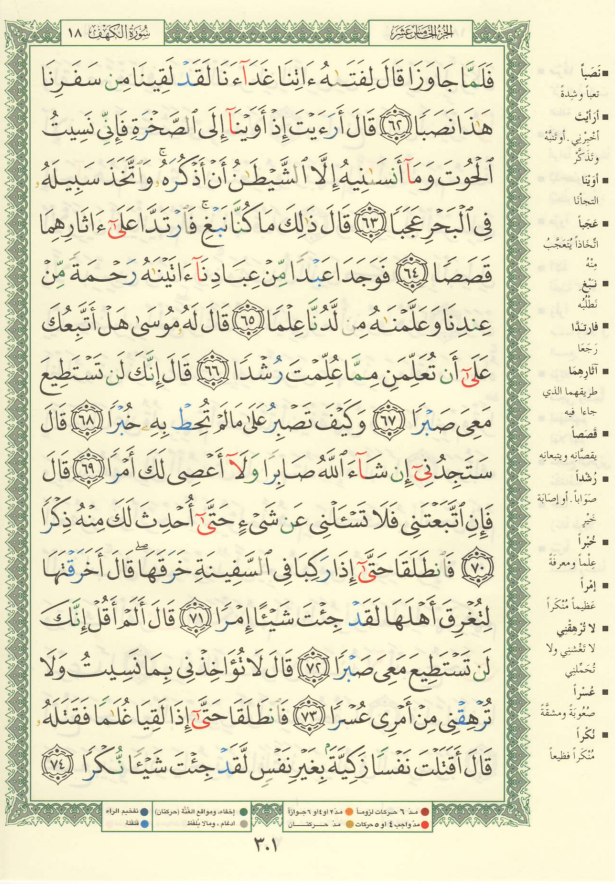 الجزء الخامس عشر
سورة الكهف ١٨
فَلَمَّا جَاوَزَا قَالَ لِفَتَىٰهُ ءَاتِنَا غَدَآءَنَا لَقَدْ لَقِينَا مِن سَفَرِنَا
هَٰذَا نَصَبًا ﴿٦٢﴾ قَالَ أَرَءَيْتَ إِذْ أَوَيْنَآ إِلَى ٱلصَّخْرَةِ فَإِنِّى نَسِيتُ
ٱلْحُوتَ وَمَآ أَنسَىٰنِيهُ إِلَّا ٱلشَّيْطَٰنُ أَنْ أَذْكُرَهُۥ ۚ وَٱتَّخَذَ سَبِيلَهُۥ
فِى ٱلْبَحْرِ عَجَبًا ﴿٦٣﴾ قَالَ ذَٰلِكَ مَا كُنَّا نَبْغِ ۚ فَٱرْتَدَّا عَلَىٰٓ ءَاثَارِهِمَا
قَصَصًا ﴿٦٤﴾ فَوَجَدَا عَبْدًا مِّنْ عِبَادِنَآ ءَاتَيْنَٰهُ رَحْمَةً مِّنْ
عِندِنَا وَعَلَّمْنَٰهُ مِن لَّدُنَّا عِلْمًا ﴿٦٥﴾ قَالَ لَهُۥ مُوسَىٰ هَلْ أَتَّبِعُكَ
عَلَىٰٓ أَن تُعَلِّمَنِ مِمَّا عُلِّمْتَ رُشْدًا ﴿٦٦﴾ قَالَ إِنَّكَ لَن تَسْتَطِيعَ
مَعِىَ صَبْرًا ﴿٦٧﴾ وَكَيْفَ تَصْبِرُ عَلَىٰ مَا لَمْ تُحِطْ بِهِۦ خُبْرًا ﴿٦٨﴾ قَالَ
سَتَجِدُنِىٓ إِن شَآءَ ٱللَّهُ صَابِرًا وَلَآ أَعْصِى لَكَ أَمْرًا ﴿٦٩﴾ قَالَ
فَإِنِ ٱتَّبَعْتَنِى فَلَا تَسْـَٔلْنِى عَن شَىْءٍ حَتَّىٰٓ أُحْدِثَ لَكَ مِنْهُ ذِكْرًا
﴿٧٠﴾ فَٱنطَلَقَا حَتَّىٰٓ إِذَا رَكِبَا فِى ٱلسَّفِينَةِ خَرَقَهَا ۖ قَالَ أَخَرَقْتَهَا
لِتُغْرِقَ أَهْلَهَا لَقَدْ جِئْتَ شَيْـًٔا إِمْرًا ﴿٧١﴾ قَالَ أَلَمْ أَقُلْ إِنَّكَ
لَن تَسْتَطِيعَ مَعِىَ صَبْرًا ﴿٧٢﴾ قَالَ لَا تُؤَاخِذْنِى بِمَا نَسِيتُ وَلَا
تُرْهِقْنِى مِنْ أَمْرِى عُسْرًا ﴿٧٣﴾ فَٱنطَلَقَا حَتَّىٰٓ إِذَا لَقِيَا غُلَٰمًا فَقَتَلَهُۥ
قَالَ أَقَتَلْتَ نَفْسًا زَكِيَّةًۢ بِغَيْرِ نَفْسٍ لَّقَدْ جِئْتَ شَيْـًٔا نُّكْرًا ﴿٧٤﴾
نَصَباً
تعباً وشدةً
أرَأَيْتَ
أخبِرْني . أو تنبَّهْ
وتذكَّرْ
أوَيْنَا
التجأنا
عَجَباً
اتِّخَاذاً يُتَعَجَّبُ
مِنْهُ
نَبْغِ
نَطْلُبُه
فارتدَّا
رَجَعَا
آثَارِهِمَا
طريقهما الذي
جاءا فيه
قَصَصاً
يقصَّانِهِ ويتبعانِهِ
رُشْداً
صَوَاباً . أو إصَابَةَ
خَيْرٍ
خُبْراً
عِلْماً ومعرفةً
إمْراً
عَظيماً مُنْكَراً
لا تُرْهِقْنِي
لا تَغْشَنِي ولا
تُحَمِّلْنِي
عُسْراً
صُعُوبَةً ومشقَّةً
نُكْراً
مُنْكَراً فظيعاً
مدّ ٦ حركات لزوماً
مدّ ٢ أو ٤ أو ٦ جوازاً
إخفاء، ومواقع الغُنَّة (حركتان)
تفخيم الراء
مدّ واجب ٤ أو ٥ حركات
مدّ حركتان
ادغام، وما لا يُلفَظ
قلقلة
٣٠١